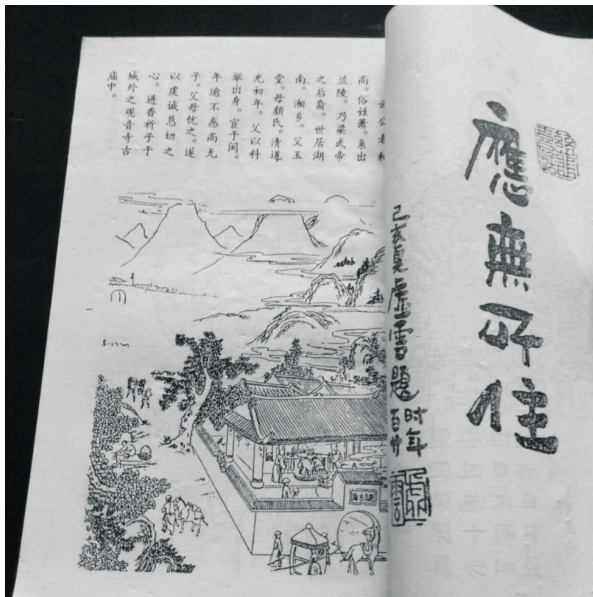 應無所住
己亥夏虛雲題
时年
百廿
云公老和
尚。俗姓萧。系出
兰陵。乃梁武帝
之后裔。世居湖
南。湘乡。父玉
堂。母颜氏。清道
光初年。父以科
举出身。宦于闽。
年逾不惑尚无
子。父母忧之。遂
以虔诚恳切之
心。进香祈子于
城外之观音寺古
庙中。